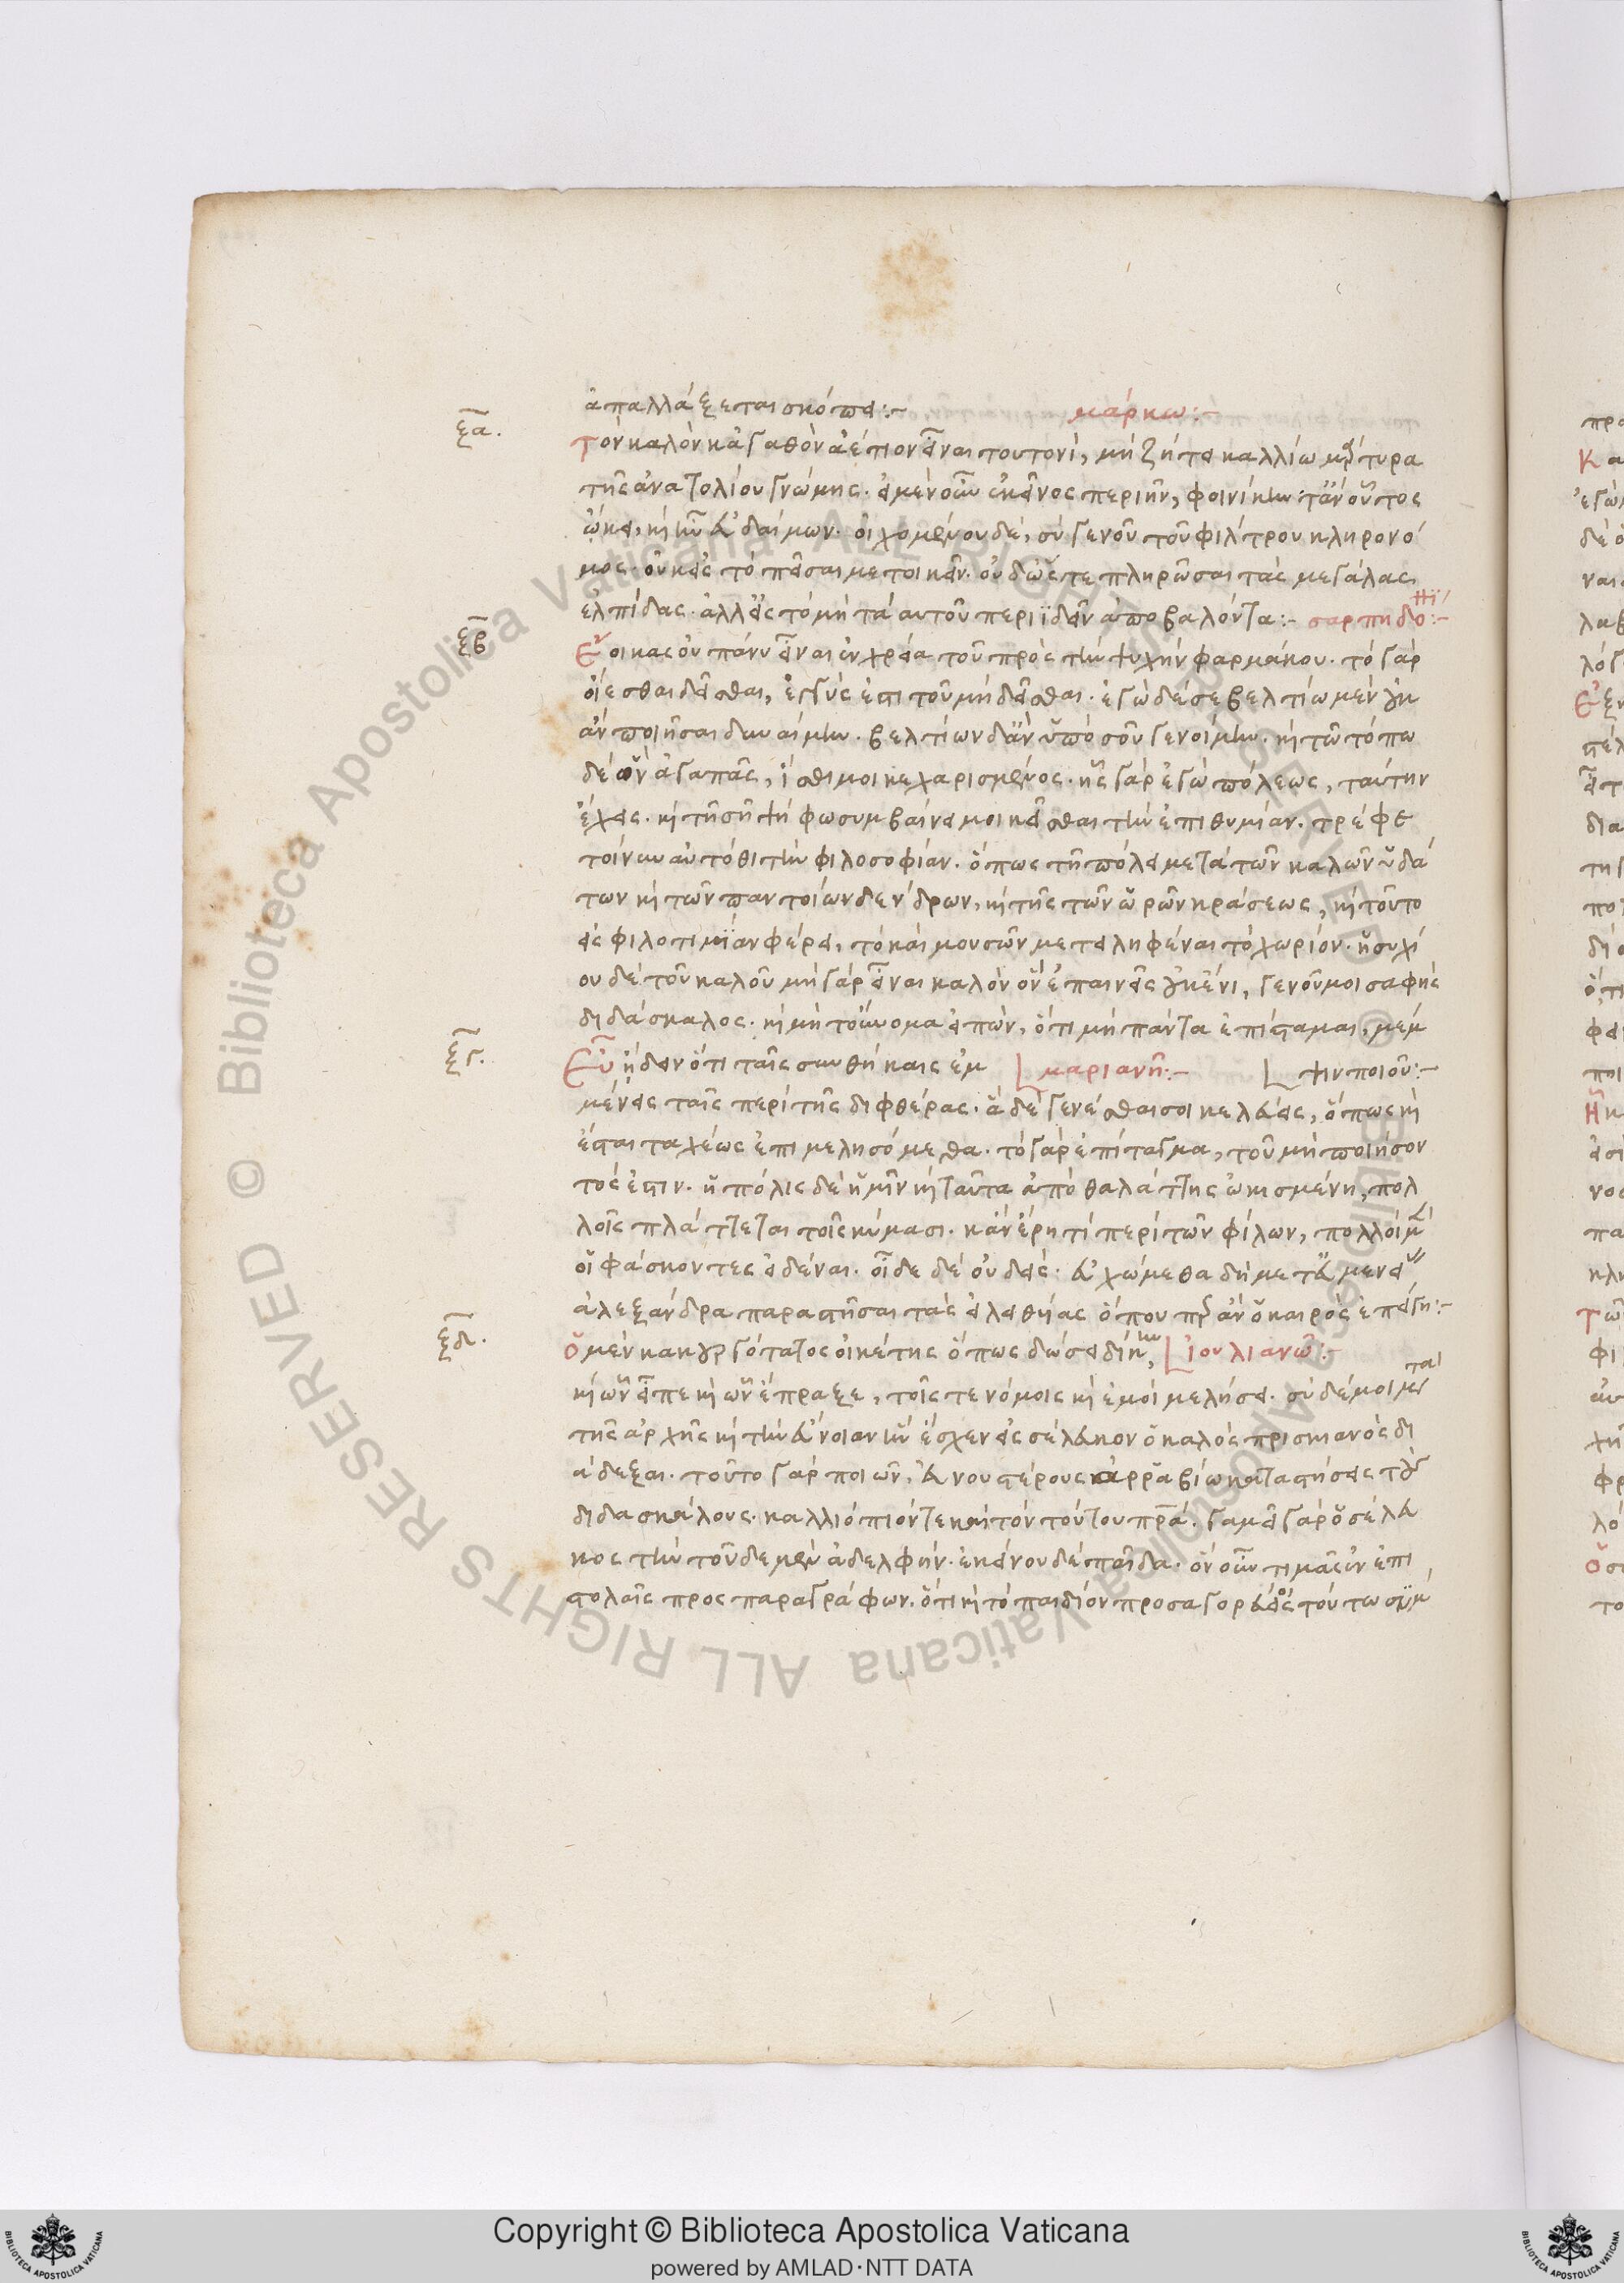 ἀπαλλάξεται σκόπει:- μάρκω:-
ξα.
τὸν καλὸν κἀγαθὸν ἀέτιον εἶναι τουτονὶ, μὴ ζήτει καλλίω μάρτυρα
τῆς ἀνατολίου γνώμης. εἰ μὲν οὖν ἐκεῖνος περιῆν, φοινίκην τ' ἂν οὗτος
ᾤκει, καὶ ἦν εὐδαίμων. οἰχομένου δὲ, σὺ γενοῦ τοῦ φίλτρου κληρονό
μος. οὐκ εἰς τὸ πεῖσαι μετοικεῖν. οὐδ' ὥστε πληρῶσαι τὰς μεγάλας
ἐλπίδας. ἀλλ' εἰς τὸ μὴ τὰ αὐτοῦ περιϊδεῖν ἀποβαλόντα:- σαρπηδο:-
ξβ
ἔοικας οὐ πάνυ εἶναι ἐν χρεία τοῦ πρὸς τὴν ψυχὴν φαρμάκου. τὸ γὰρ
οἴεσθαι δεῖσθαι, ἐγγύς ἐστι τοῦ μὴ δεῖσθαι. ἐγὼ δέ σε βελτίω μὲν οὐκ
ἂν ποιῆσαι δυναίμην. βελτίων δ' ἂν ὑπὸ σοῦ γενοίμην. καὶ τῶ τόπω
δὲ ὃν ἀγαπᾶς, ἴσθι μοι κεχαρισμένος. ἧς γὰρ ἐγὼ πόλεως, ταύτην
ἔχεις. καὶ τῆ σῆ ψήφω συμβαίνει μοι κεῖσθαι τὴν ἐπιθυμίαν. τρέφε
τοίνυν αὐτόθι τὴν φιλοσοφίαν. ὅπως τῆ πόλει μετὰ τῶν καλῶν ὑδά
των καὶ τῶν παντοίων δένδρων, καὶ τῆς τῶν ὡρῶν κράσεως, καὶ τοῦτο
εἰς φιλοτιμίαν φέρει, τὸ καὶ μουσῶν μετειληφέναι τὸ χωρίον. ἡσυχί
ου δὲ τοῦ καλοῦ μὴ γὰρ εἶναι καλὸν ὃν ἐπαινεῖς οὐκ ἔνι, γενοῦ μοι σαφὴς
διδάσκαλος. καὶ μὴ τοὔνομα εἰπὼν, ὅτι μὴ πάντα ἐπίσταμαι, μέμ
ξγ.
εὖ ᾔδειν ὅτι ταῖς συνθήκαις ἐμ μαριανῆ:- ψιν ποιοῦ:-
μένεις ταῖς περὶ τῆς διφθέρας. ἃ δὲ γενέσθαι σοι κελεύεις, ὅπως καὶ
ἔσται ταχέως ἐπιμελησόμεθα. τὸ γὰρ ἐπίταγμα, τοῦ μὴ ποιήσον
τός ἐστιν. ἡ πόλις δὲ ἡμῖν καὶ ταῦτα ἀπὸ θαλάττης ᾠκισμένη, πολ
λοῖς πλάττεται τοῖς κύμασι. κἂν ἔρη τί περὶ τῶν φίλων, πολλοὶ μὲν
οἱ φάσκοντες εἰδέναι. οἶδε δὲ οὐδείς. εὐχώμεθα δὴ μετ' εὐμενείας
ἀλεξάνδρα παραστῆσαι τὰς εἰλειθυίας ὅπου περ ἂν ὁ καιρὸς ἐπείγη:-
ξδ.
ὁ μὲν κακουργότατος οἰκέτης ὅπως δώσει δίκην, ἰουλιανῶ:-
καὶ ὧν εἶπε καὶ ὧν ἔπραξε, τοῖς τε νόμοις καὶ ἐμοὶ μελήσει. σὺ δέ μοι μετὰ
τῆς ἀρχῆς καὶ τὴν εὔνοιαν ἣν ἔσχεν εἰς σέλευκον ὁ καλὸς πρισκιανὸς δι
άδεξαι. τοῦτο γὰρ ποιῶν, εὐνουστέρους ἀρραβίω καταστήσεις τοὺς
διδασκάλους. καλλιόπιόν τε καὶ τὸν τούτου πρα. γαμεῖ γὰρ ὁ σέλευ
κος τὴν τοῦδε μὲν ἀδελφήν. ἐκείνου δὲ παῖδα. ὃν οὖν τιμᾶς ἐν ἐπι
στολαῖς προσπαραγράφων. ὅτι καὶ τὸ παιδίον προσαγορεύεις τούτω συμ
Copyright © Biblioteca Apostolica Vaticana
powered by AMLAD·NTT DATA